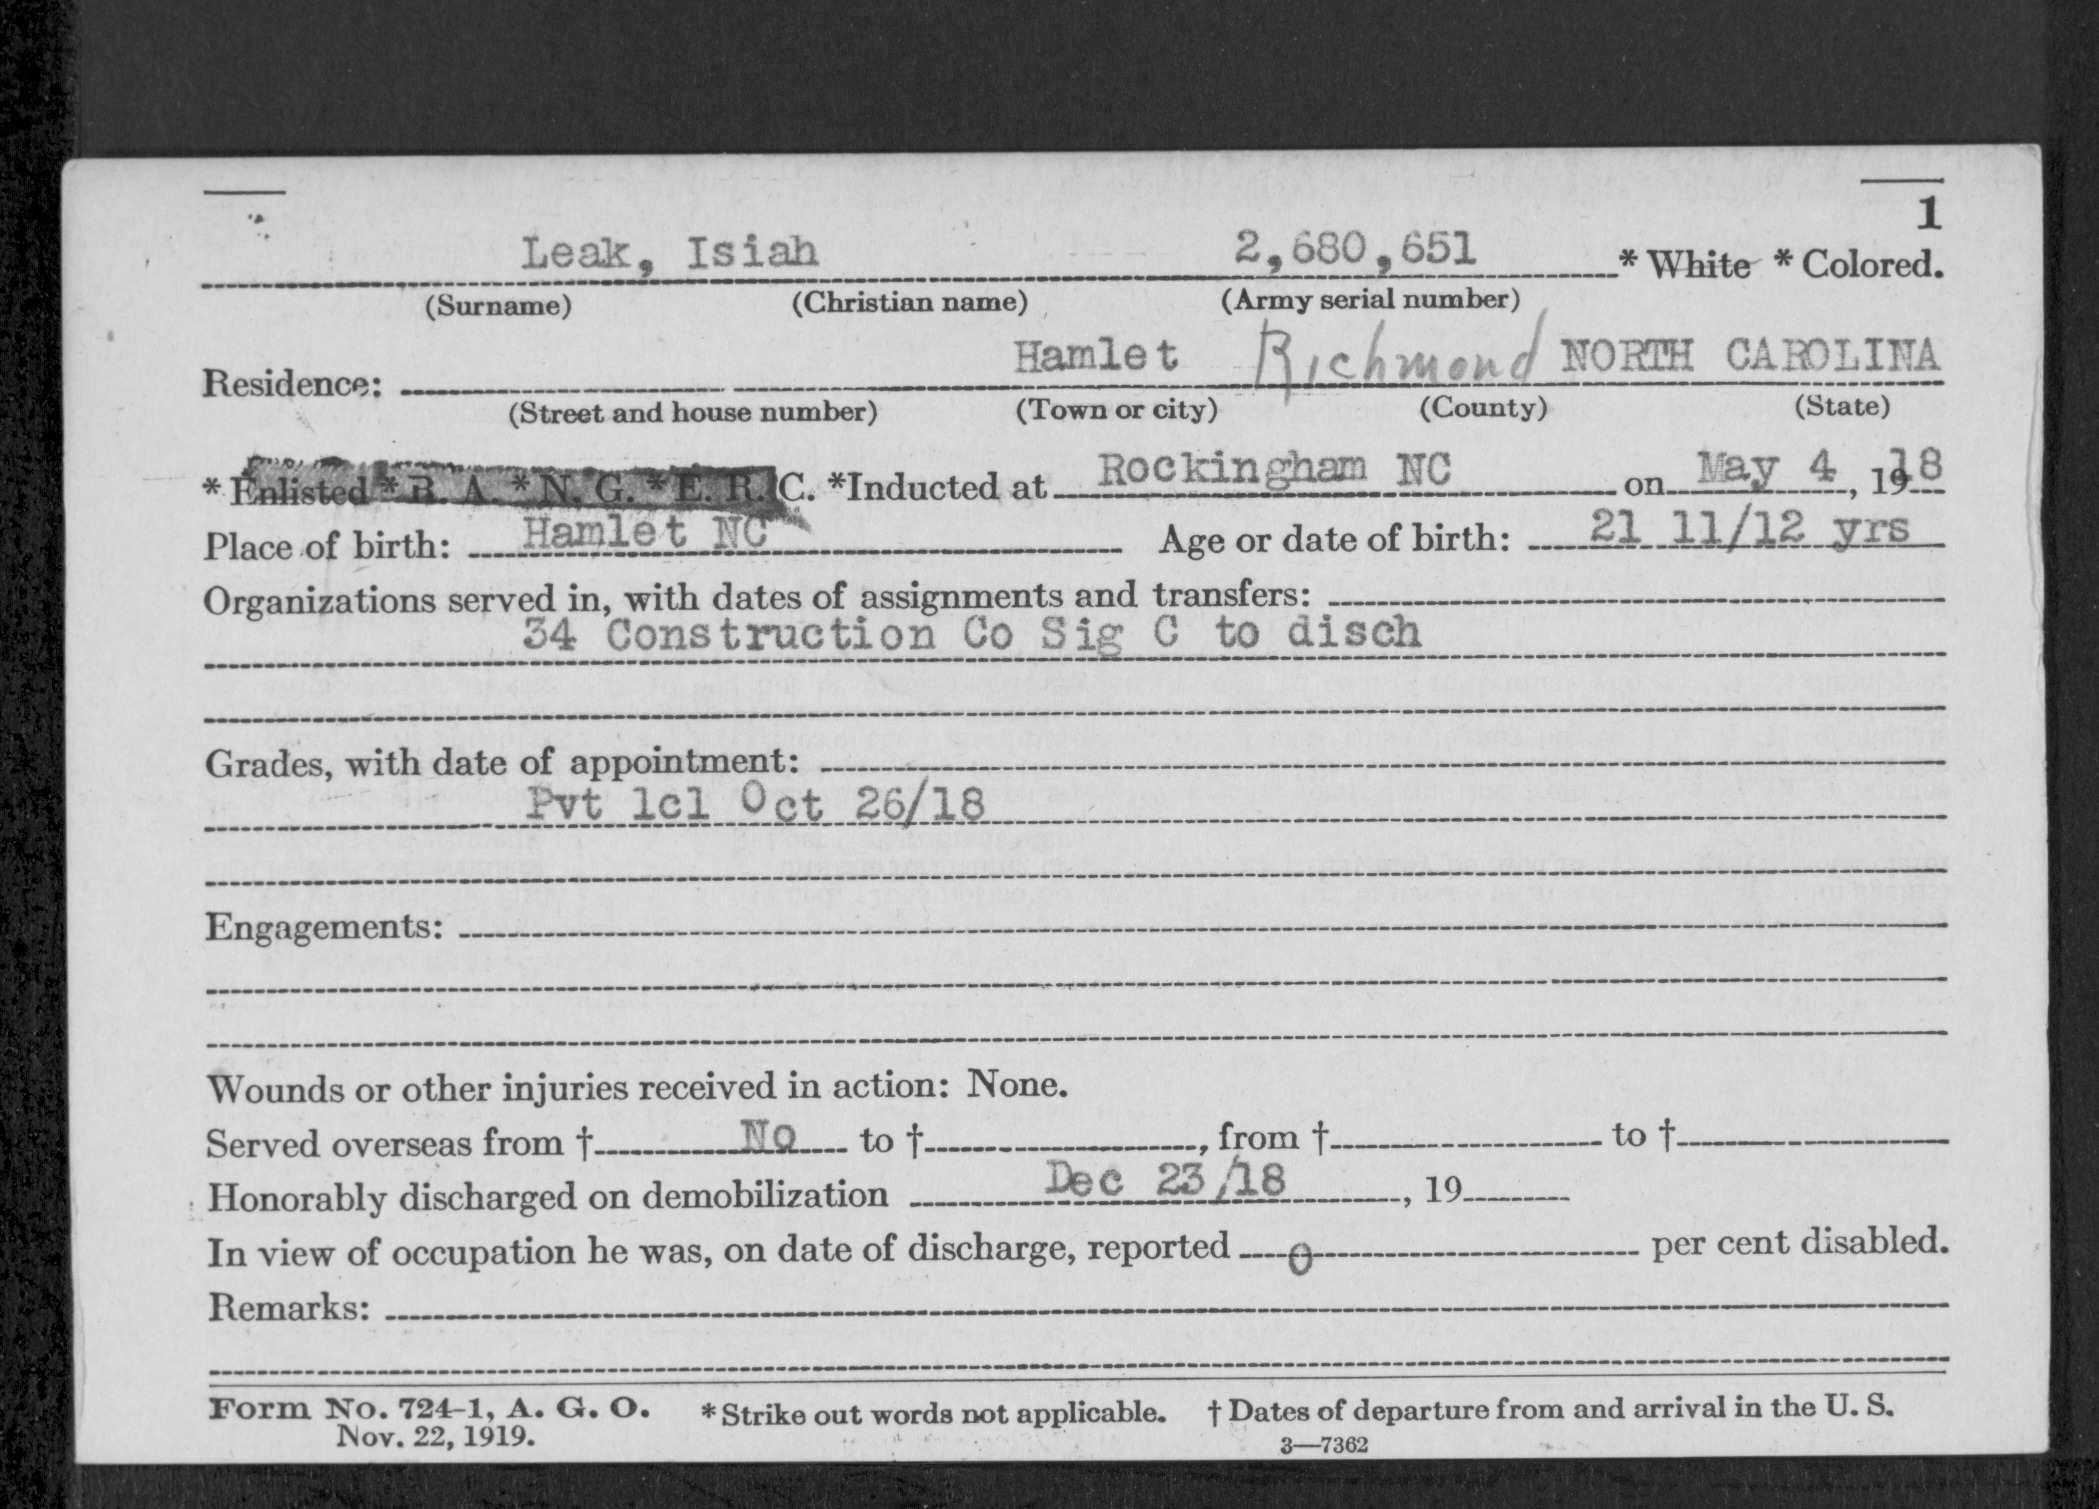 1
Leak, Isiah 2,680,651 * White * Colored.
(Surname) (Christian name) (Army serial number)
Residence: Hamlet Richmond NORTH CAROLINA
(Street and house number) (Town or city) (County) (State)
* Enlisted * R. A. * N. G. * E. R. C. *Inducted at Rockingham NC on May 4, 1918
Place of birth: Hamlet NC Age or date of birth: 21 11/12 yrs
Organizations served in, with dates of assignments and transfers:
34 Construction Co Sig C to disch
Grades, with date of appointment:
Pvt 1cl Oct 26/18
Engagements:
Wounds or other injuries received in action: None.
Served overseas from † No to †, from † to †
Honorably discharged on demobilization Dec 23/18, 19
In view of occupation he was, on date of discharge, reported 0 per cent disabled.
Remarks:
Form No. 724-1, A. G. O. * Strike out words not applicable. † Dates of departure from and arrival in the U. S.
Nov. 22, 1919. 3—7362